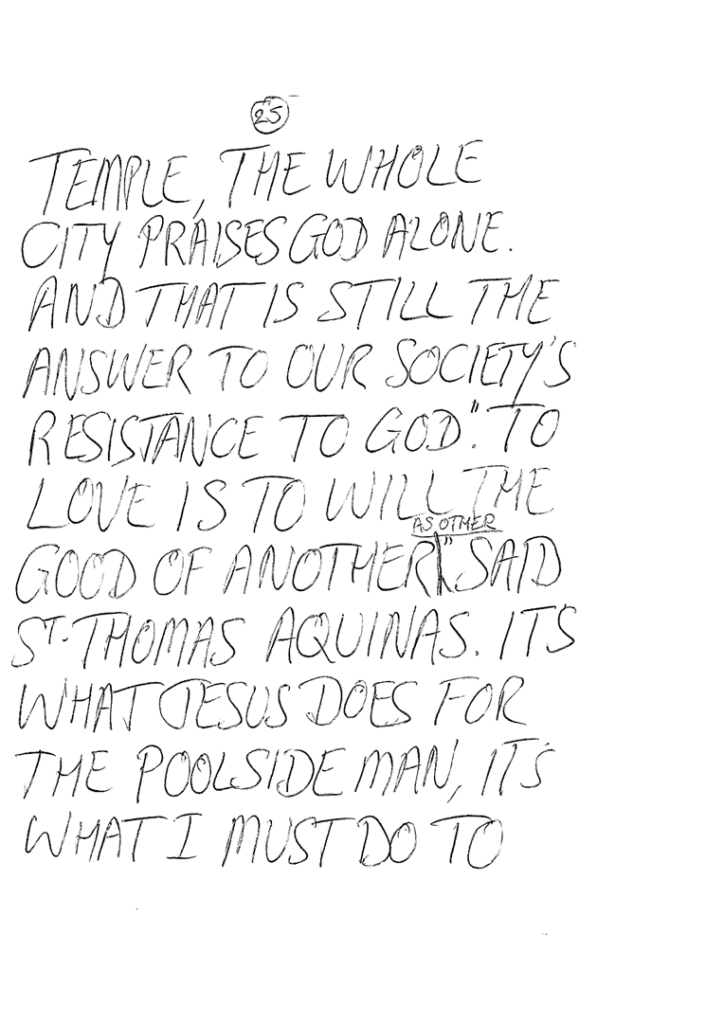 25
TEMPLE, THE WHOLE
CITY PRAISES GOD ALONE.
AND THAT IS STILL THE
ANSWER TO OUR SOCIETY'S
RESISTANCE TO GOD. "TO
LOVE IS TO WILL THE
AS OTHER
GOOD OF ANOTHER," SAID
ST. THOMAS AQUINAS. ITS
WHAT JESUS DOES FOR
THE POOLSIDE MAN, IT'S
WHAT I MUST DO TO